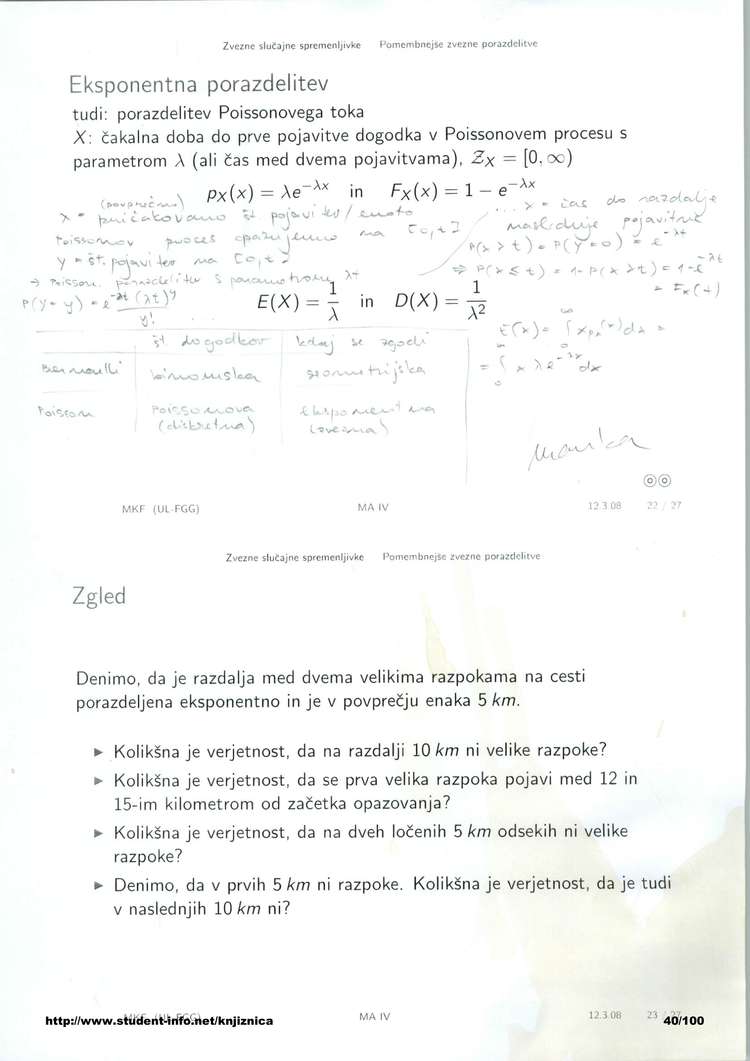 Zvezne slučajne spremenljivke Pomembnejše zvezne porazdelitve
Eksponentna porazdelitev
tudi: porazdelitev Poissonovega toka
X: čakalna doba do prve pojavitve dogodka v Poissonovem procesu s
parametrom λ (ali čas med dvema pojavitvama), Z_X = [0, ∞)
p_X(x) = λe^{−λx} in F_X(x) = 1 − e^{−λx}
(povprečno) x = čas do
λ = pričakovano št pojavitev/enoto
Poissonov proces opazujemo na [0,t]
P(X > t) = P(Y=0) = e^{-λt}
Y = št. pojavitev na [0,t]
⇒ P(X ≤ t) = 1-P(X > t) = 1-e^{-λt}
→ Poisson. porazdelitev s parametrom λt
= F_X(t)
P(Y=y) = e^{-λt} (λt)^y / y!
E(X) = 1/λ in D(X) = 1/λ²
E(X) = ∫_0^∞ x p_X(x) dx =
= ∫_0^∞ x λ e^{-λx} dx
št dogodkov kdaj se zgodi
Bernoulli binomska geometrijska
Poisson Poissonova eksponentna
(diskretna) (zvezna)
MKF (UL-FGG) MA IV 12.3.08 22 / 27
Zvezne slučajne spremenljivke Pomembnejše zvezne porazdelitve
Zgled
Denimo, da je razdalja med dvema velikima razpokama na cesti
porazdeljena eksponentno in je v povprečju enaka 5 km.
► Kolikšna je verjetnost, da na razdalji 10 km ni velike razpoke?
► Kolikšna je verjetnost, da se prva velika razpoka pojavi med 12 in
15-im kilometrom od začetka opazovanja?
► Kolikšna je verjetnost, da na dveh ločenih 5 km odsekih ni velike
razpoke?
► Denimo, da v prvih 5 km ni razpoke. Kolikšna je verjetnost, da je tudi
v naslednjih 10 km ni?
MKF (UL-FGG) MA IV 12.3.08 23 / 27
http://www.student-info.net/knjiznica 40/100